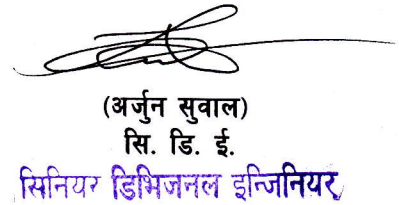 (अर्जुन सुवाल)
सि. डि. ई.
सिनियर डिभिजनल इन्जिनियर